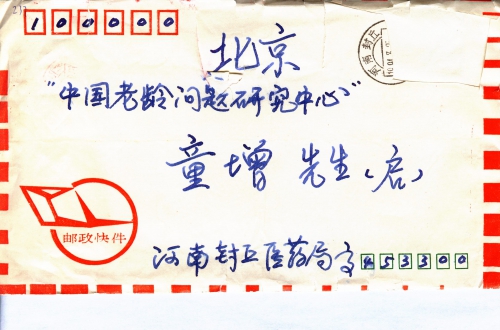 100000
北京
"中国老龄问题研究中心"
童增 先生(启)
邮政快件
河南封丘医药局
453300